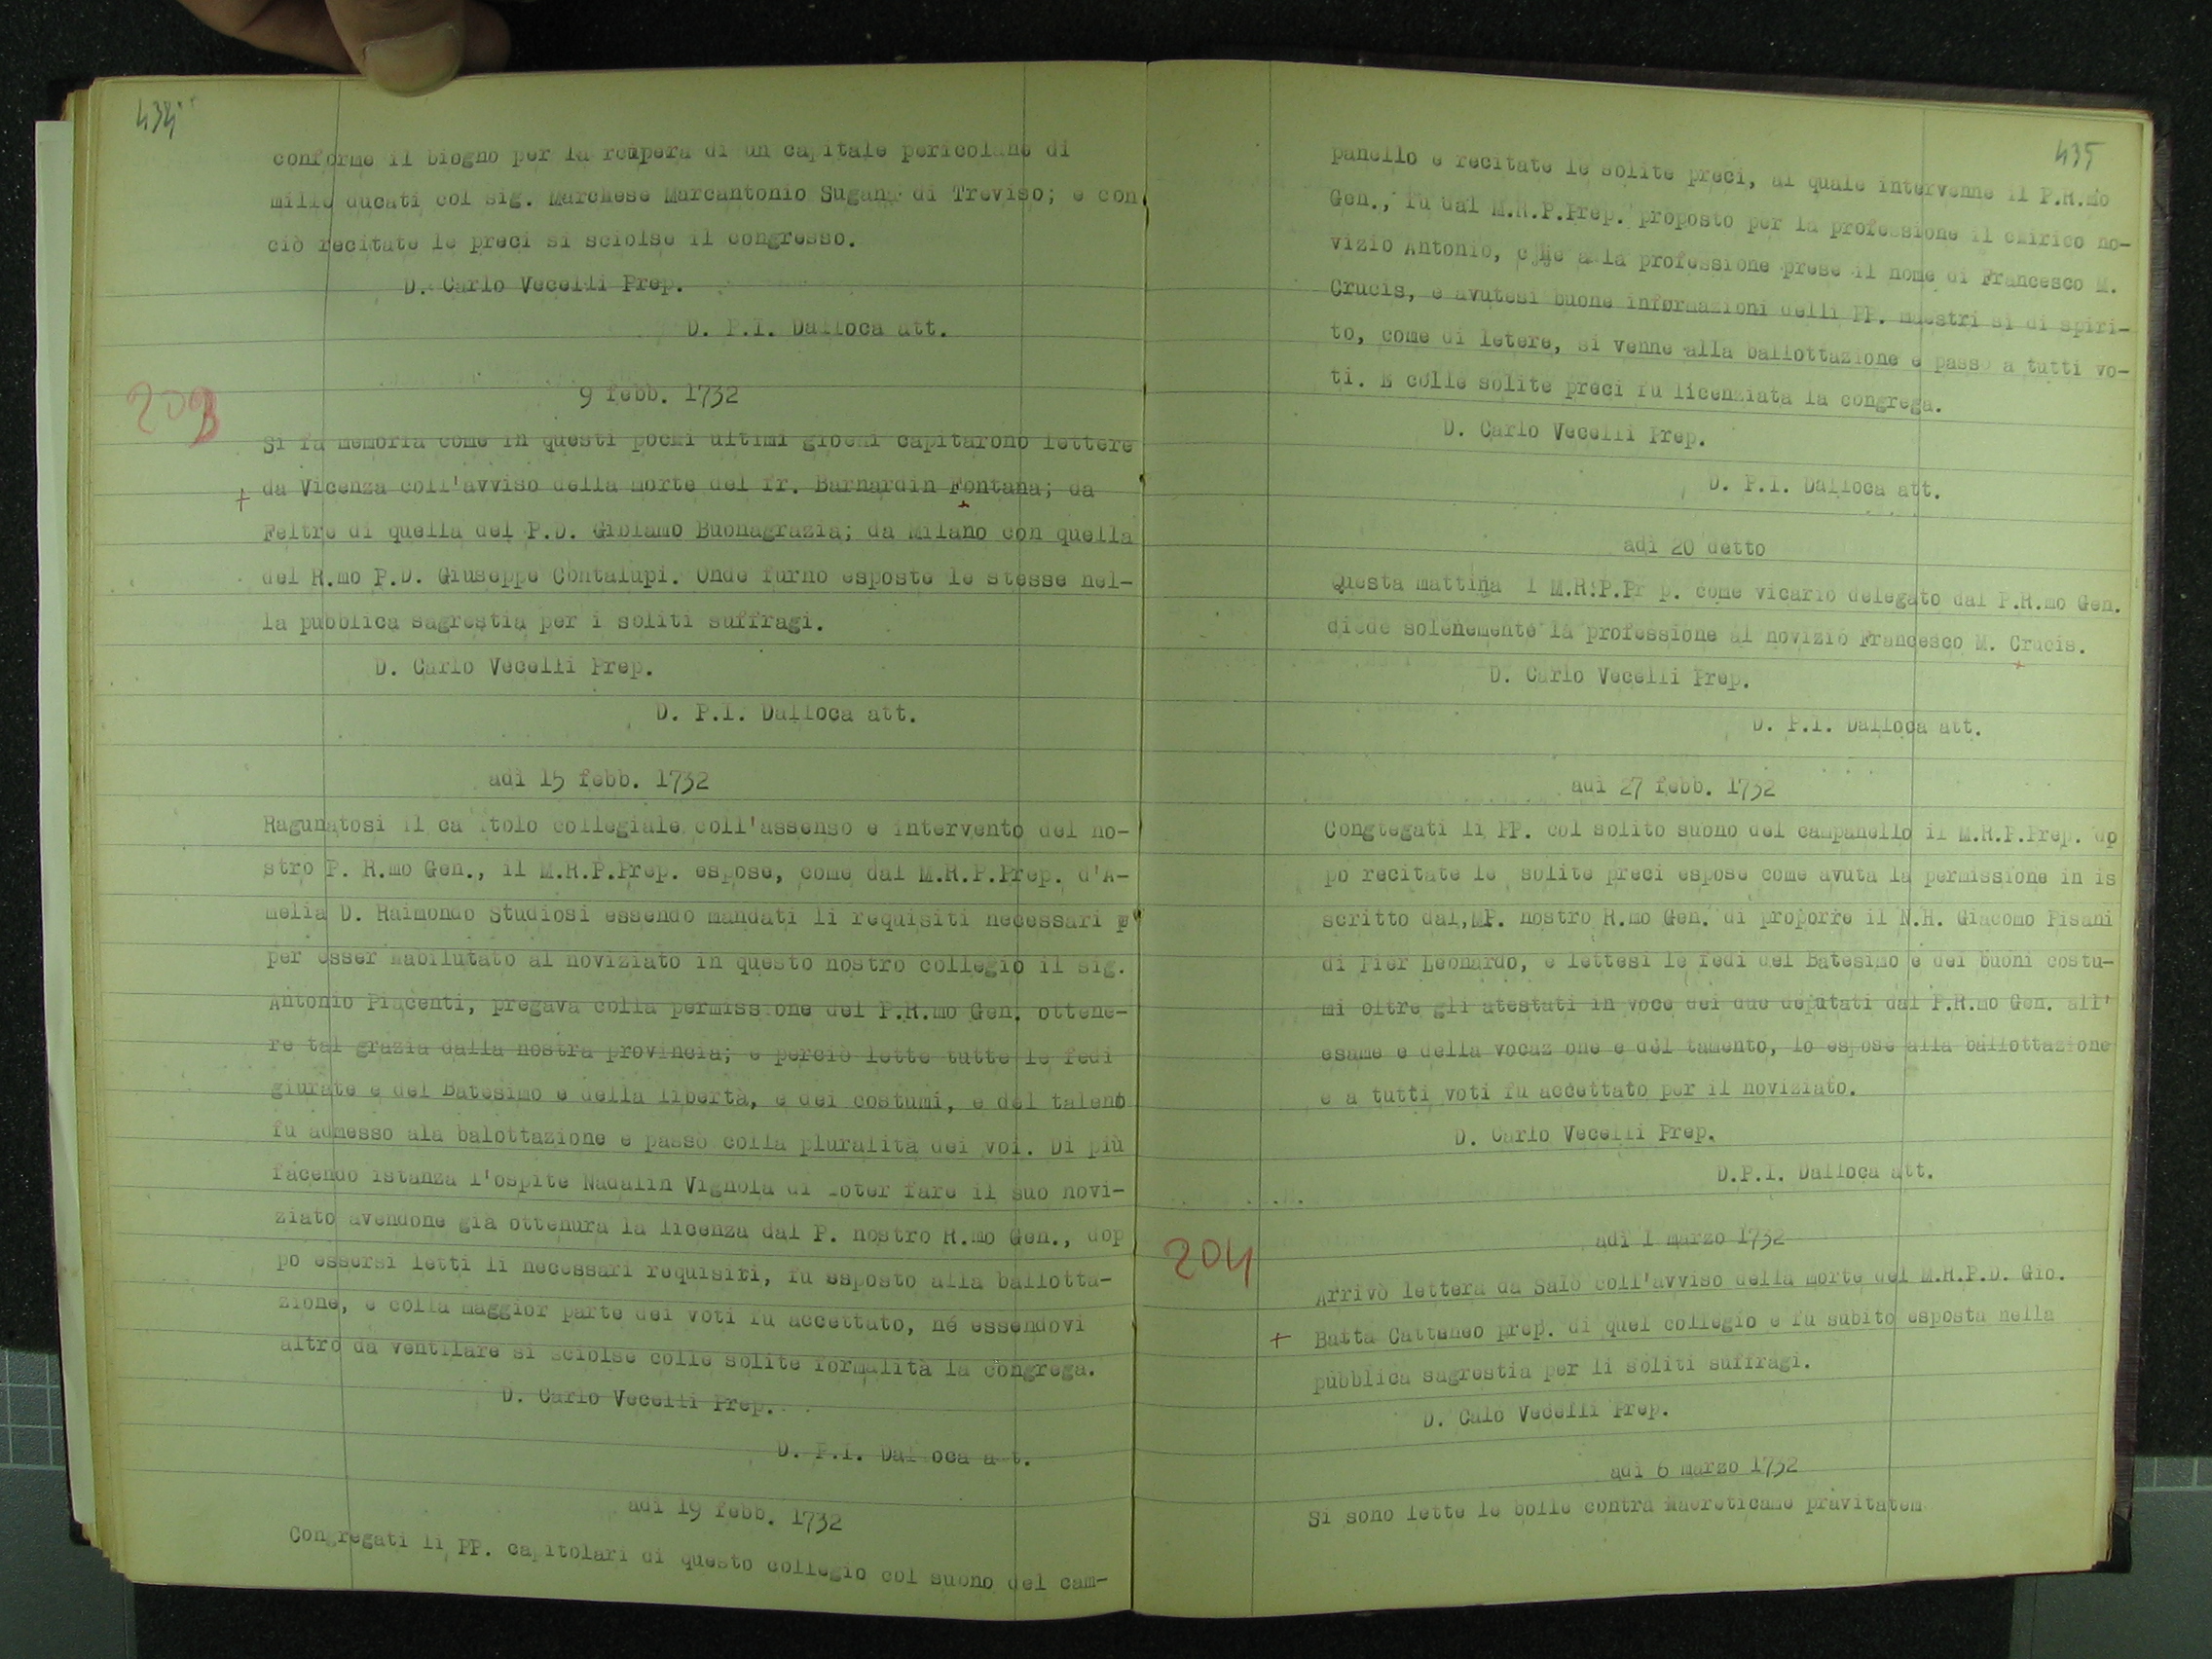 434
conforme il biogno per la reupera di un capitale pericolane di
mille ducati col sig. Marchese Marcantonio Sugana di Treviso; e con
ciò recitate le preci si sciolse il congresso.
D. Carlo Vecelli Prep.
D. P.I. Dalloca att.
203
9 febb. 1732
Si fa memoria come in questi pochi ultimi giorni capitarono lettere
+ da Vicenza coll'avviso della morte del fr. Barnardin Fontana; da
Feltre di quella del P.D. Giolamo Buonagrazia; da Milano con quella
del R.mo P.D. Giuseppe Contalupi. Onde furno esposte le stesse nel-
la pubblica sagrestia per i soliti suffragi.
D. Carlo Vecelli Prep.
D. P.I. Dalloca att.
adì 15 febb. 1732
Ragunatosi il ca itolo collegiale coll'assenso e intervento del no-
stro P. R.mo Gen., il M.R.P.Prep. espose, come dal M.R.P.Prep. d'A-
melia D. Raimondo Studiosi essendo mandati li requisiti necessari p
per esser habilutato al noviziato in questo nostro collegio il sig.
Antonio Piacenti, pregava colla permissione del P.R.mo Gen. ottene-
re tal grazia dalla nostra provincia; e perciò lette tutte le fedi
giurate e del Batesimo e della libertà, e dei costumi, e del talento
fu admesso ala balottazione e passò colla pluralità dei voi. Di più
facendo istanza l'ospite Nadalin Vignola di poter fare il suo novi-
ziato avendone già ottenura la licenza dal P. nostro R.mo Gen., dop
po essersi letti li necessari requisiti, fu esposto alla ballotta-
zione, e colla maggior parte dei voti fu accettato, né essendovi
altro da ventilare si sciolse colle solite formalità la congrega.
D. Carlo Vecelli Prep.
D. P.I. Dalloca att.
adì 19 febb. 1732
Congregati li PP. capitolari di questo collegio col suono del cam-
435
panello e recitate le solite preci, al quale intervenne il P.R.mo
Gen., fu dal M.R.P.Prep. proposto per la professione il chirico no-
vizio Antonio, che a la professione prese il nome di Francesco M.
Crucis, e avutesi buone informazioni delli PP. maestri sì di spiri-
to, come di letere, si venne alla ballottazione e passò a tutti vo-
ti. E colle solite preci fu licenziata la congrega.
D. Carlo Vecelli Prep.
D. P.I. Dalloca att.
adì 20 detto
Questa mattina l M.R.P.Pr p. come vicario delegato dal P.R.mo Gen.
diede solenemente la professione al novizio Francesco M. Crucis.
D. Carlo Vecelli Prep.
D. P.I. Dalloca att.
adì 27 febb. 1732
Congtegati li PP. col solito suono del campanello il M.R.P.Prep. do
po recitate le solite preci espose come avuta la permissione in is
scritto dal P. nostro R.mo Gen. di proporre il N.H. Giacomo Pisani
di Pier Leonardo, e lettesi le fedi del Batesimo e dei buoni costu-
mi oltre gli atestati in voce dei due deputati dal P.R.mo Gen. all'
esame e della vocazione e del tamento, lo espose alla ballottazione
e a tutti voti fu accettato per il noviziato.
D. Carlo Vecelli Prep.
D.P.I. Dalloca att.
204
adì 1 marzo 1732
Arrivò lettera da Salò coll'avviso della morte del M.R.P.D. Gio.
+ Batta Cattaneo prep. di quel collegio e fu subito esposta nella
pubblica sagrestia per li soliti suffragi.
D. Calo Vecelli Prep.
adì 6 marzo 1732
Si sono lette le bolle contra Haereticame pravitatem